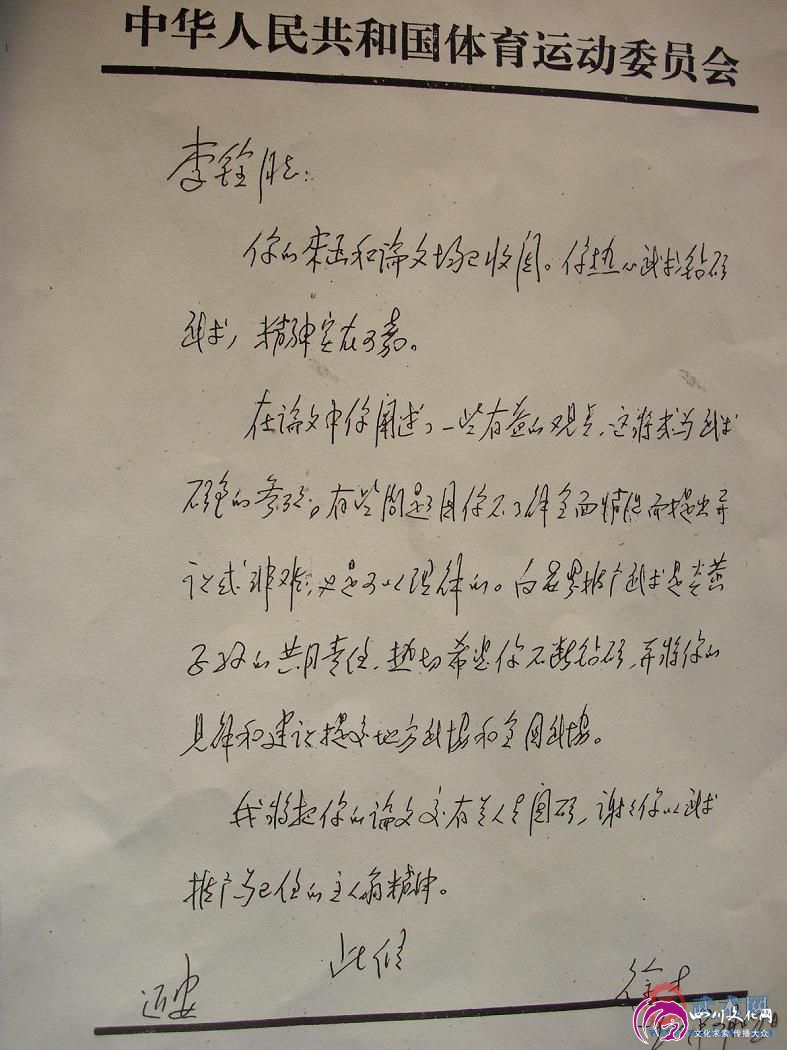 中华人民共和国体育运动委员会
李铨同志：
你的来函和論文均已收阅。你热心武术，钻研
武术，精神实在可嘉。
在論文中你阐述了一些有益的观点，这将成为武术
研究的参考。有些问题因你不了解全面情况而提出异
议或非难，也是可以理解的。向世界推广武术是炎黄
子孙的共同责任，热切希望你不断钻研，并将你的
见解和建议提交地方武协和全国武协。
我将把你的論文交有关人士阅研，谢谢你以武术
推广为己任的主人翁精神。
此候
近安
徐才
武术网
四川文化网
文化求索 传播大众